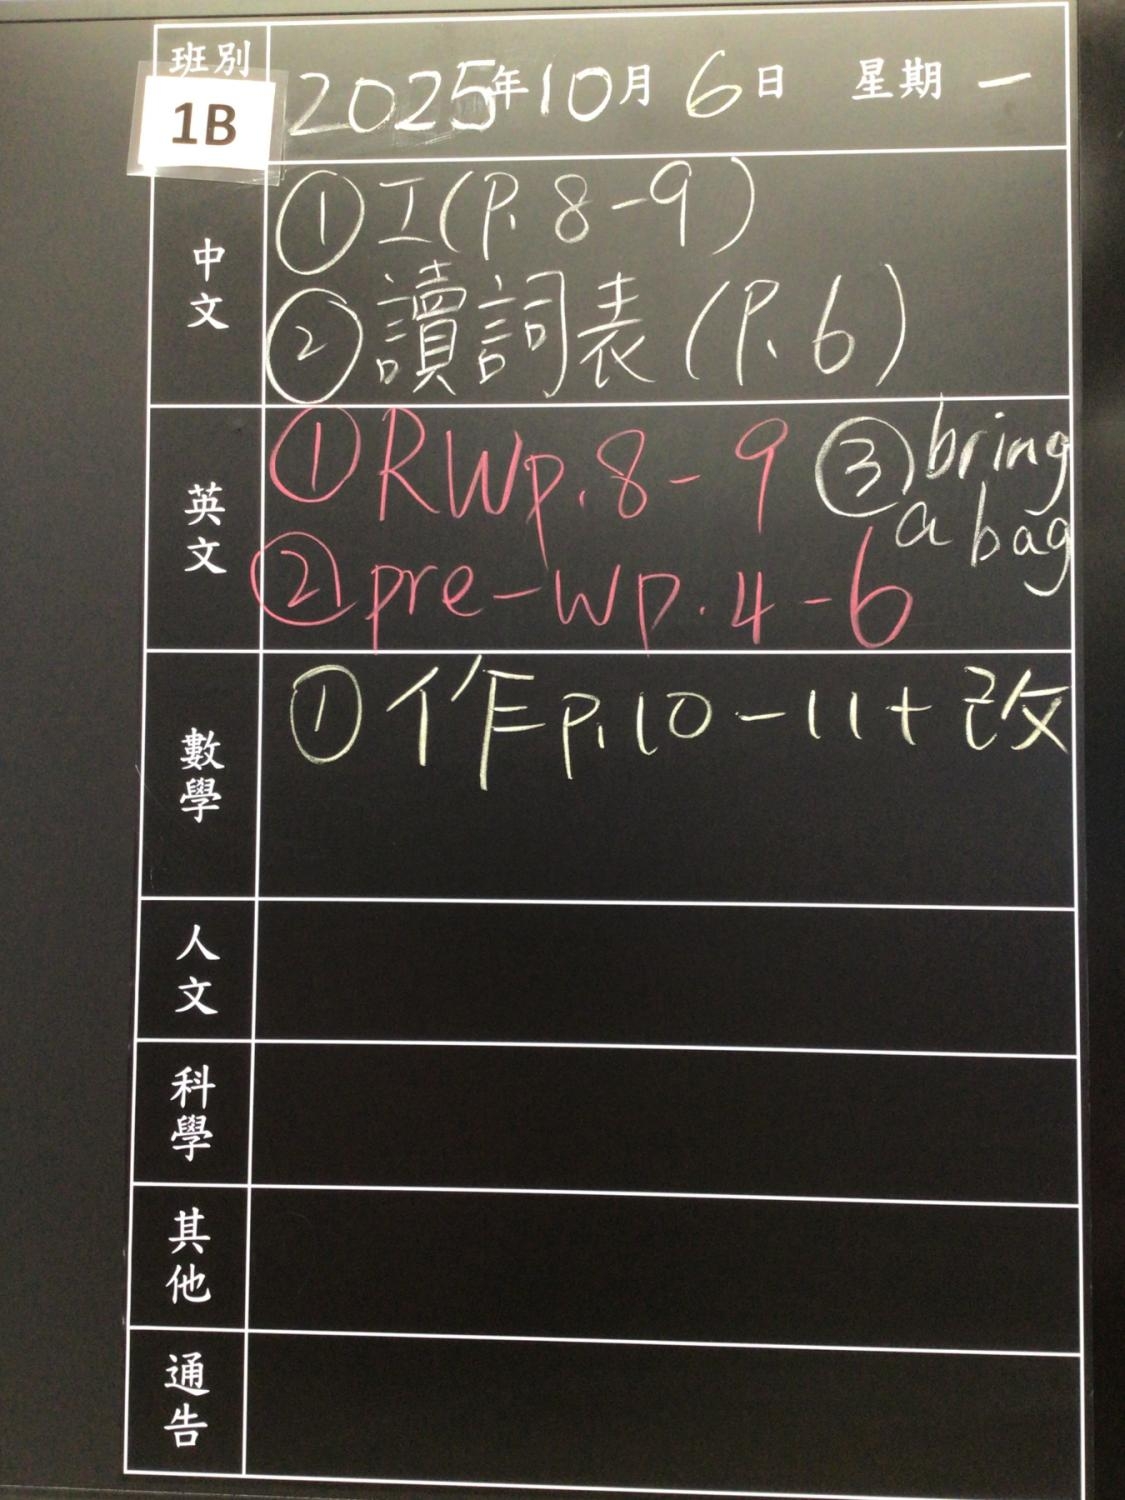 班別
1B
2025年10月6日 星期一
中文
①工(P.8-9)
②讀詞表(P.6)
英文
①RWp.8-9
②pre-wp.4-6
③bring
a bag
數學
①作p.10-11+改
人文
科學
其他
通告